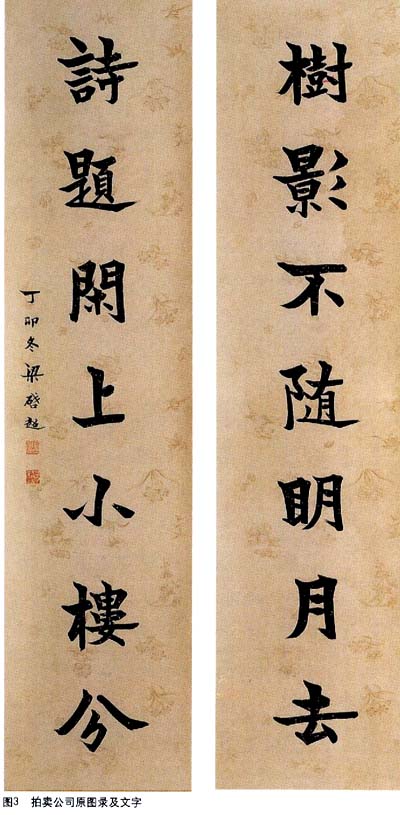 樹影不随明月去
詩題閑上小樓分
丁卯冬 梁啓超
图3 拍卖公司原图录及文字